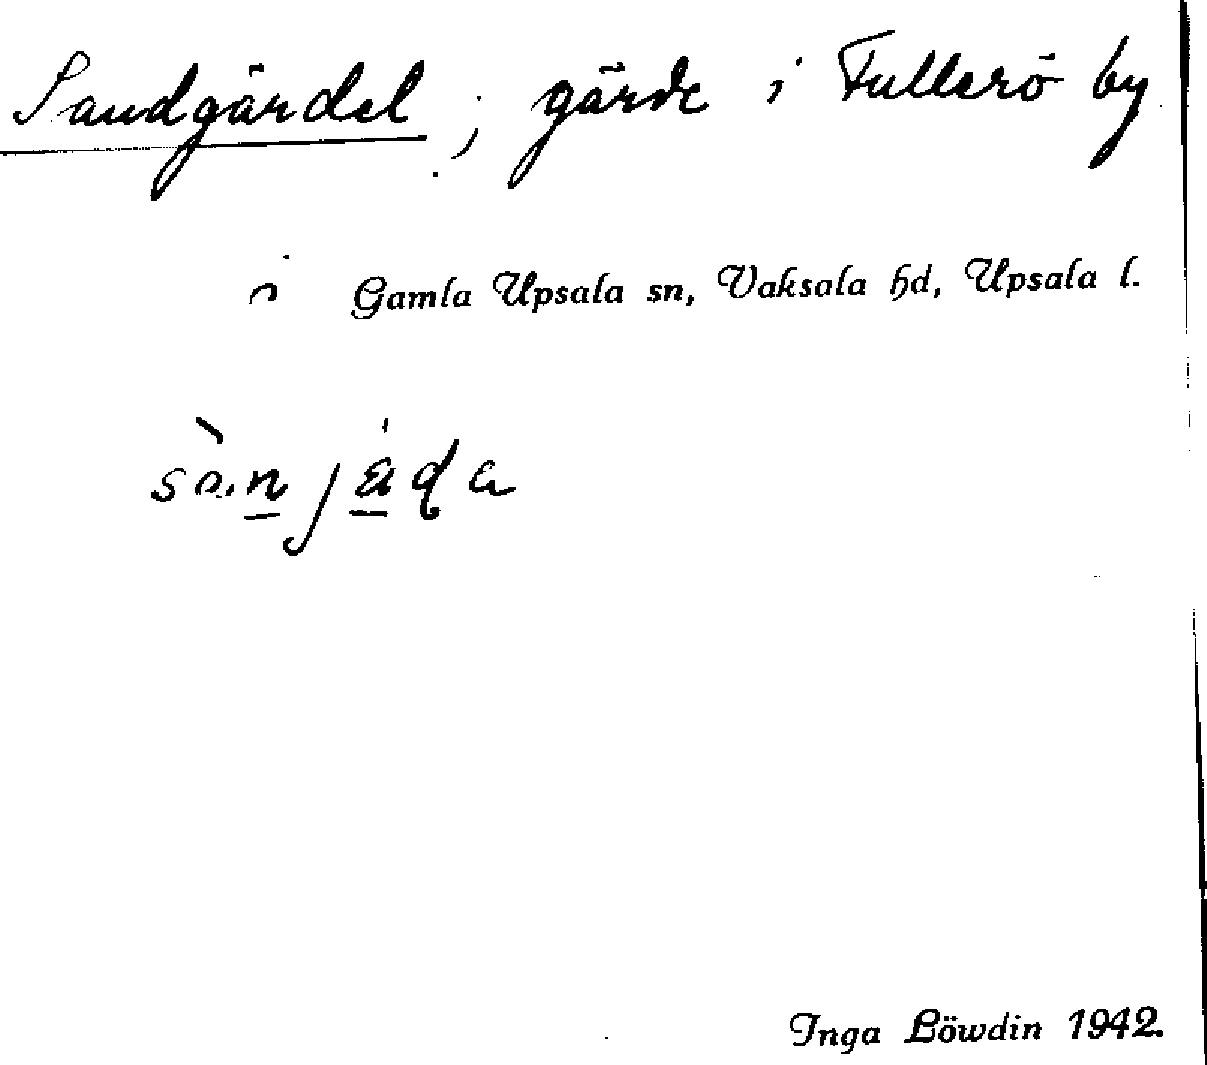 Sandgärdet ; gärde i Fullerö by
i Gamla Upsala sn, Vaksala hd, Upsala l.
Inga Löwdin 1942.